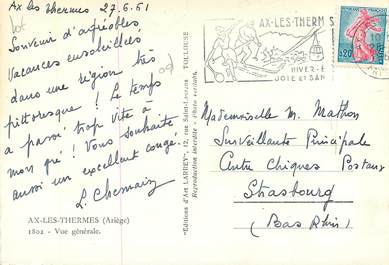 Ax les Thermes 27.6.61
Souvenir d'agréables
Vacances ensoleillées
dans une région très
pittoresque ! Le temps
a passé trop vite à
mon gré ! Vous souhaite
aussi un excellent congé.
L. Chesnaiz
AX-LES-THERMES (Ariège)
1802 - Vue générale.
"Editions d'Art LARREY", 12, rue Saint-
TOULOUSE
Reproduction interdite - Photo véritable
AX-LES-THERM
HIVER-E
JOIE ET SAN
0,20
Mademoiselle M. Mathon
Surveillante Principale
Centre Chèques Postaux
Strasbourg
(Bas Rhin)